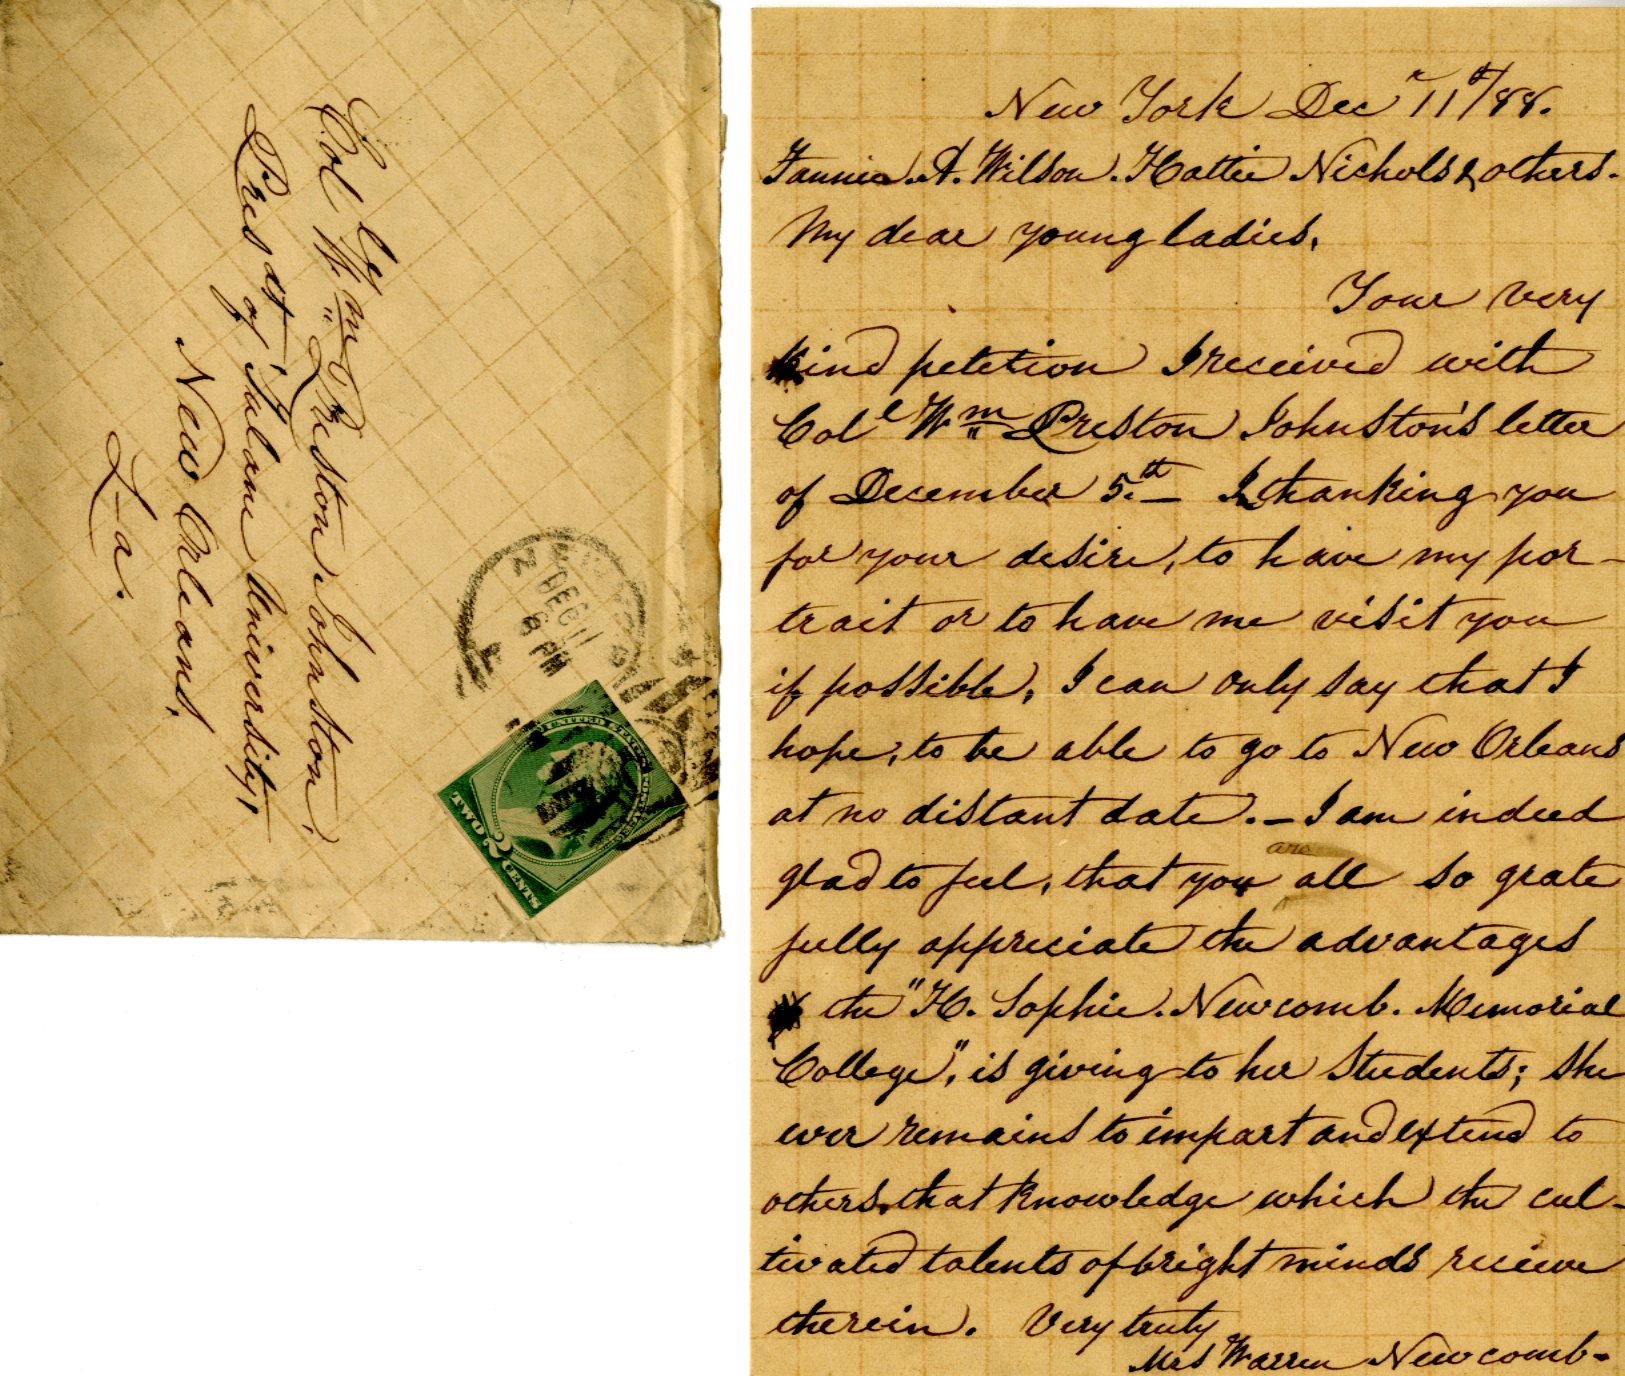 Col Wm Preston Johnston.
Prest of Tulane University,
New Orleans,
La.
NEW YORK
DEC 11
8 PM
UNITED STATES
TWO 2 CENTS
New York Dec r 11th/88.
Fannie. A. Wilson. Hattie Nichols & others.
My dear young ladies,
Your very
kind petetion I received with
Coll Wm Preston Johnston's letter
of December 5.th — In thanking you
for your desire, to have my por-
trait or to have me visit you
if possible, I can only say that I
hope, to be able to go to New Orleans
at no distant date. — I am indeed
glad to feel, that you are all so grate
fully appreciate the advantages
the "H. Sophie. Newcomb. Memorial
College", is giving to her students; she
ever remains to impart and extend to
others, that knowledge which the cul-
tivated talents of bright minds recieve
therein. Very truly
Mrs Warren Newcomb-